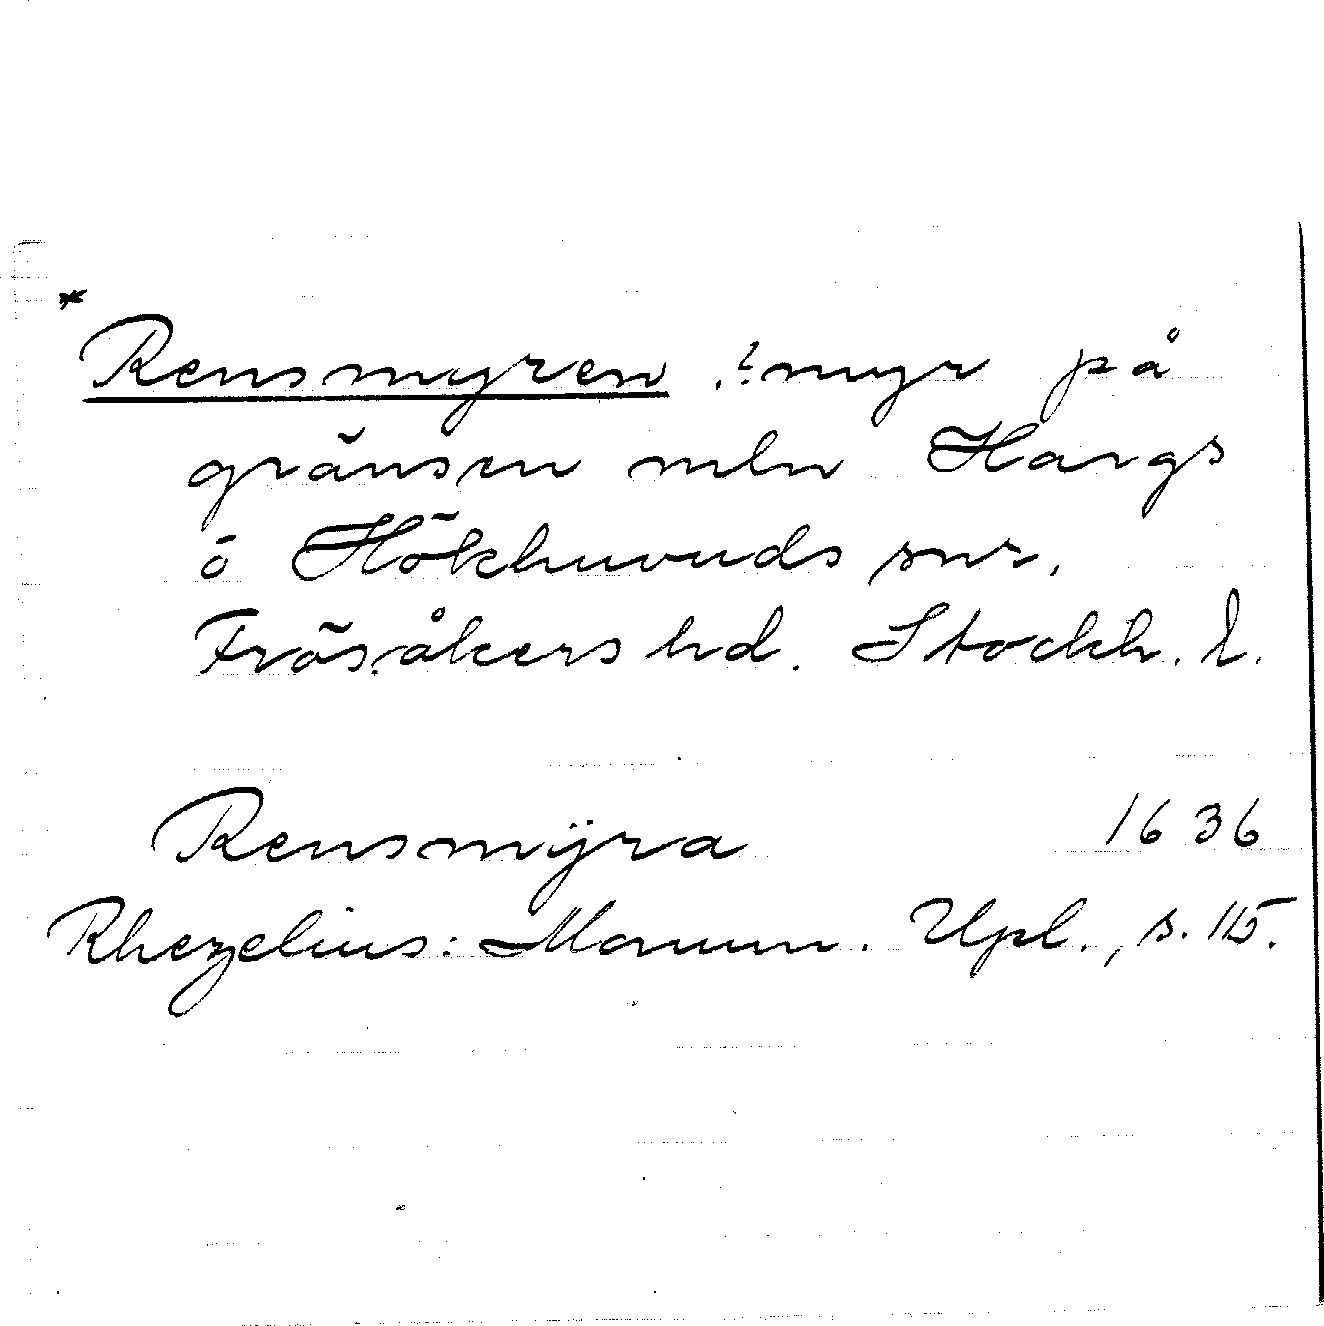 *
Rensmyren, ? myr på
gränsen mln Hargs
o Hökhuvuds snr,
Frösåkers hd. Stockh. l.
Rensmÿra 1636
Rhezelius: Monum. Upl., s. 115.